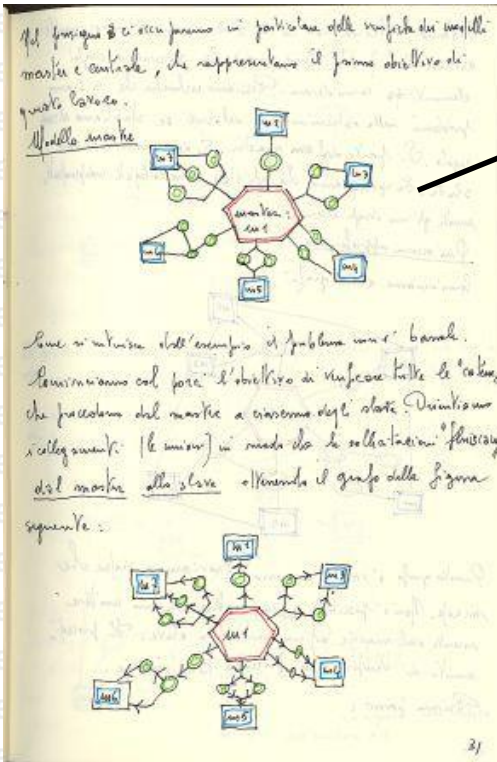 Nel prosieguo ci occuperemo in particolare della verifica dei modelli
master e centrale, che rappresentano il primo obiettivo di
questo lavoro.
Modello master
m2
m7
m3
master:
m1
m6
m4
m5
Come si intuisce dall'esempio il problema non è banale.
Cominciamo col porci l'obiettivo di verificare tutte le "catene"
che procedono dal master a ciascuno degli slave. Orientiamo
i collegamenti (le unioni) in modo che le sollecitazioni "fluiscano"
dal master allo slave ottenendo il grafo della figura
seguente:
m3
m1
m6
m5
31